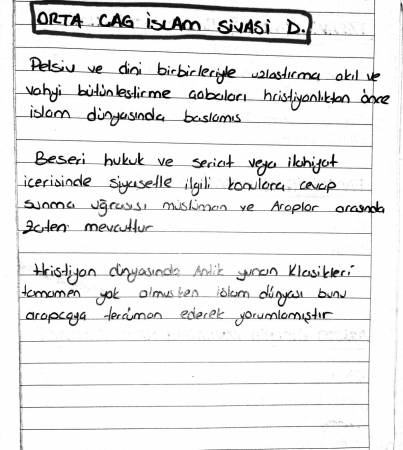 ORTA CAG İSLAM SİYASİ D.
Pelsiv ve dini birbirleriyle uzlastırma akıl ve
vahyi bütünlestirme cabaları hristiyanlıktan önce
islam dünyasında baslamıs
Beseri hukuk ve seriat veya ilahiyat
icerisinde siyasetle ilgili konulara cevap
sunma uğrası müslüman ve Araplar arasında
zaten mevcuttur
Hristiyan dünyasında Antik yunan klasikleri
tamamen yok olmusken islam dünyası bunu
arapcaya tercüman ederek yorumlamıstır